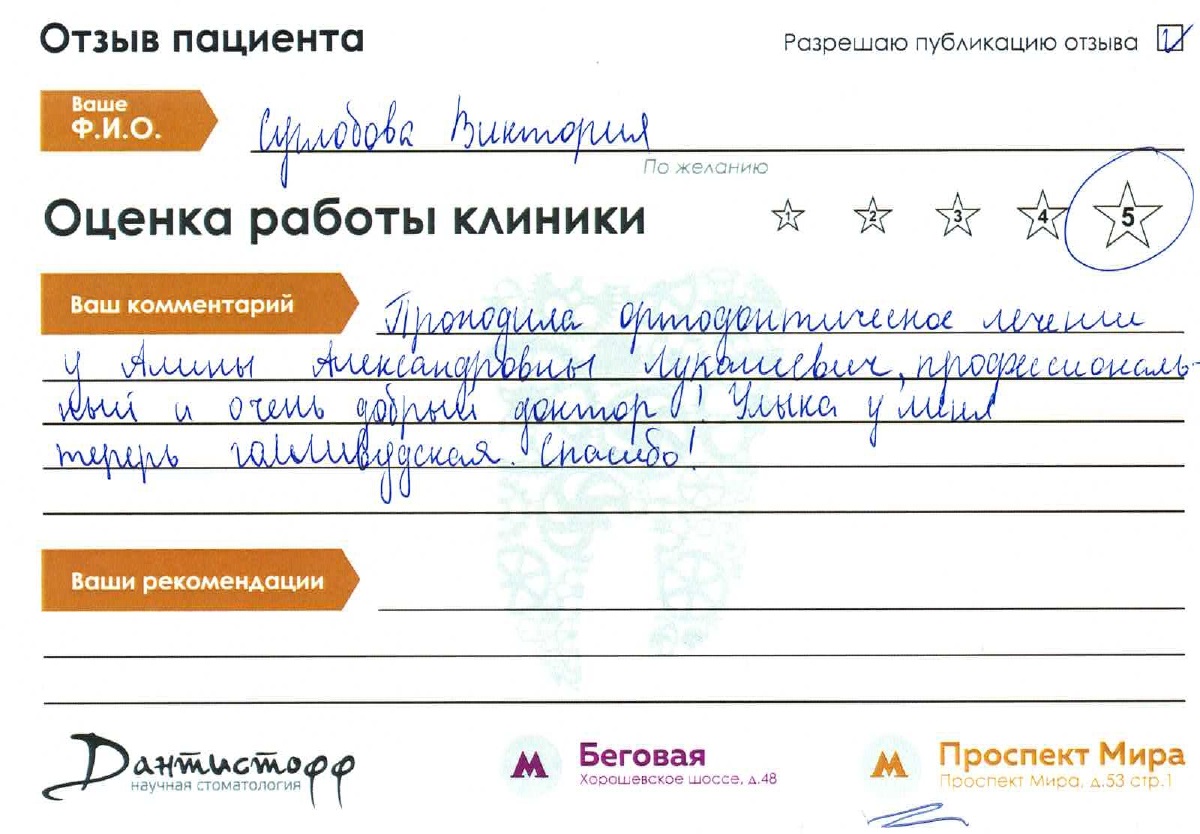 Отзыв пациента
Разрешаю публикацию отзыва
Ваше
Ф.И.О.
Суглобова Виктория
По желанию
Оценка работы клиники
1 2 3 4 5
Ваш комментарий
Проходила ортодонтическое лечении
у Алины Александровны Лукашевич, профессиональ-
ный и очень добрый доктор! Улыка у меня
теперь галливудская. Спасибо!
Ваши рекомендации
Дантистофф
научная стоматология
М Беговая
Хорошевское шоссе, д.48
М Проспект Мира
Проспект Мира, д.53 стр.1